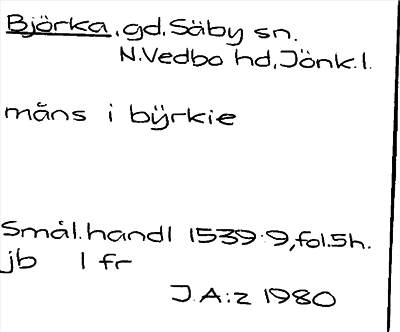 Björka, gd, Säby sn.
N. Vedbo hd, Jönk. l.
måns i bÿrkie
Smål. handl 1539:9, fol. 5h.
jb 1 fr
J.A:z 1980